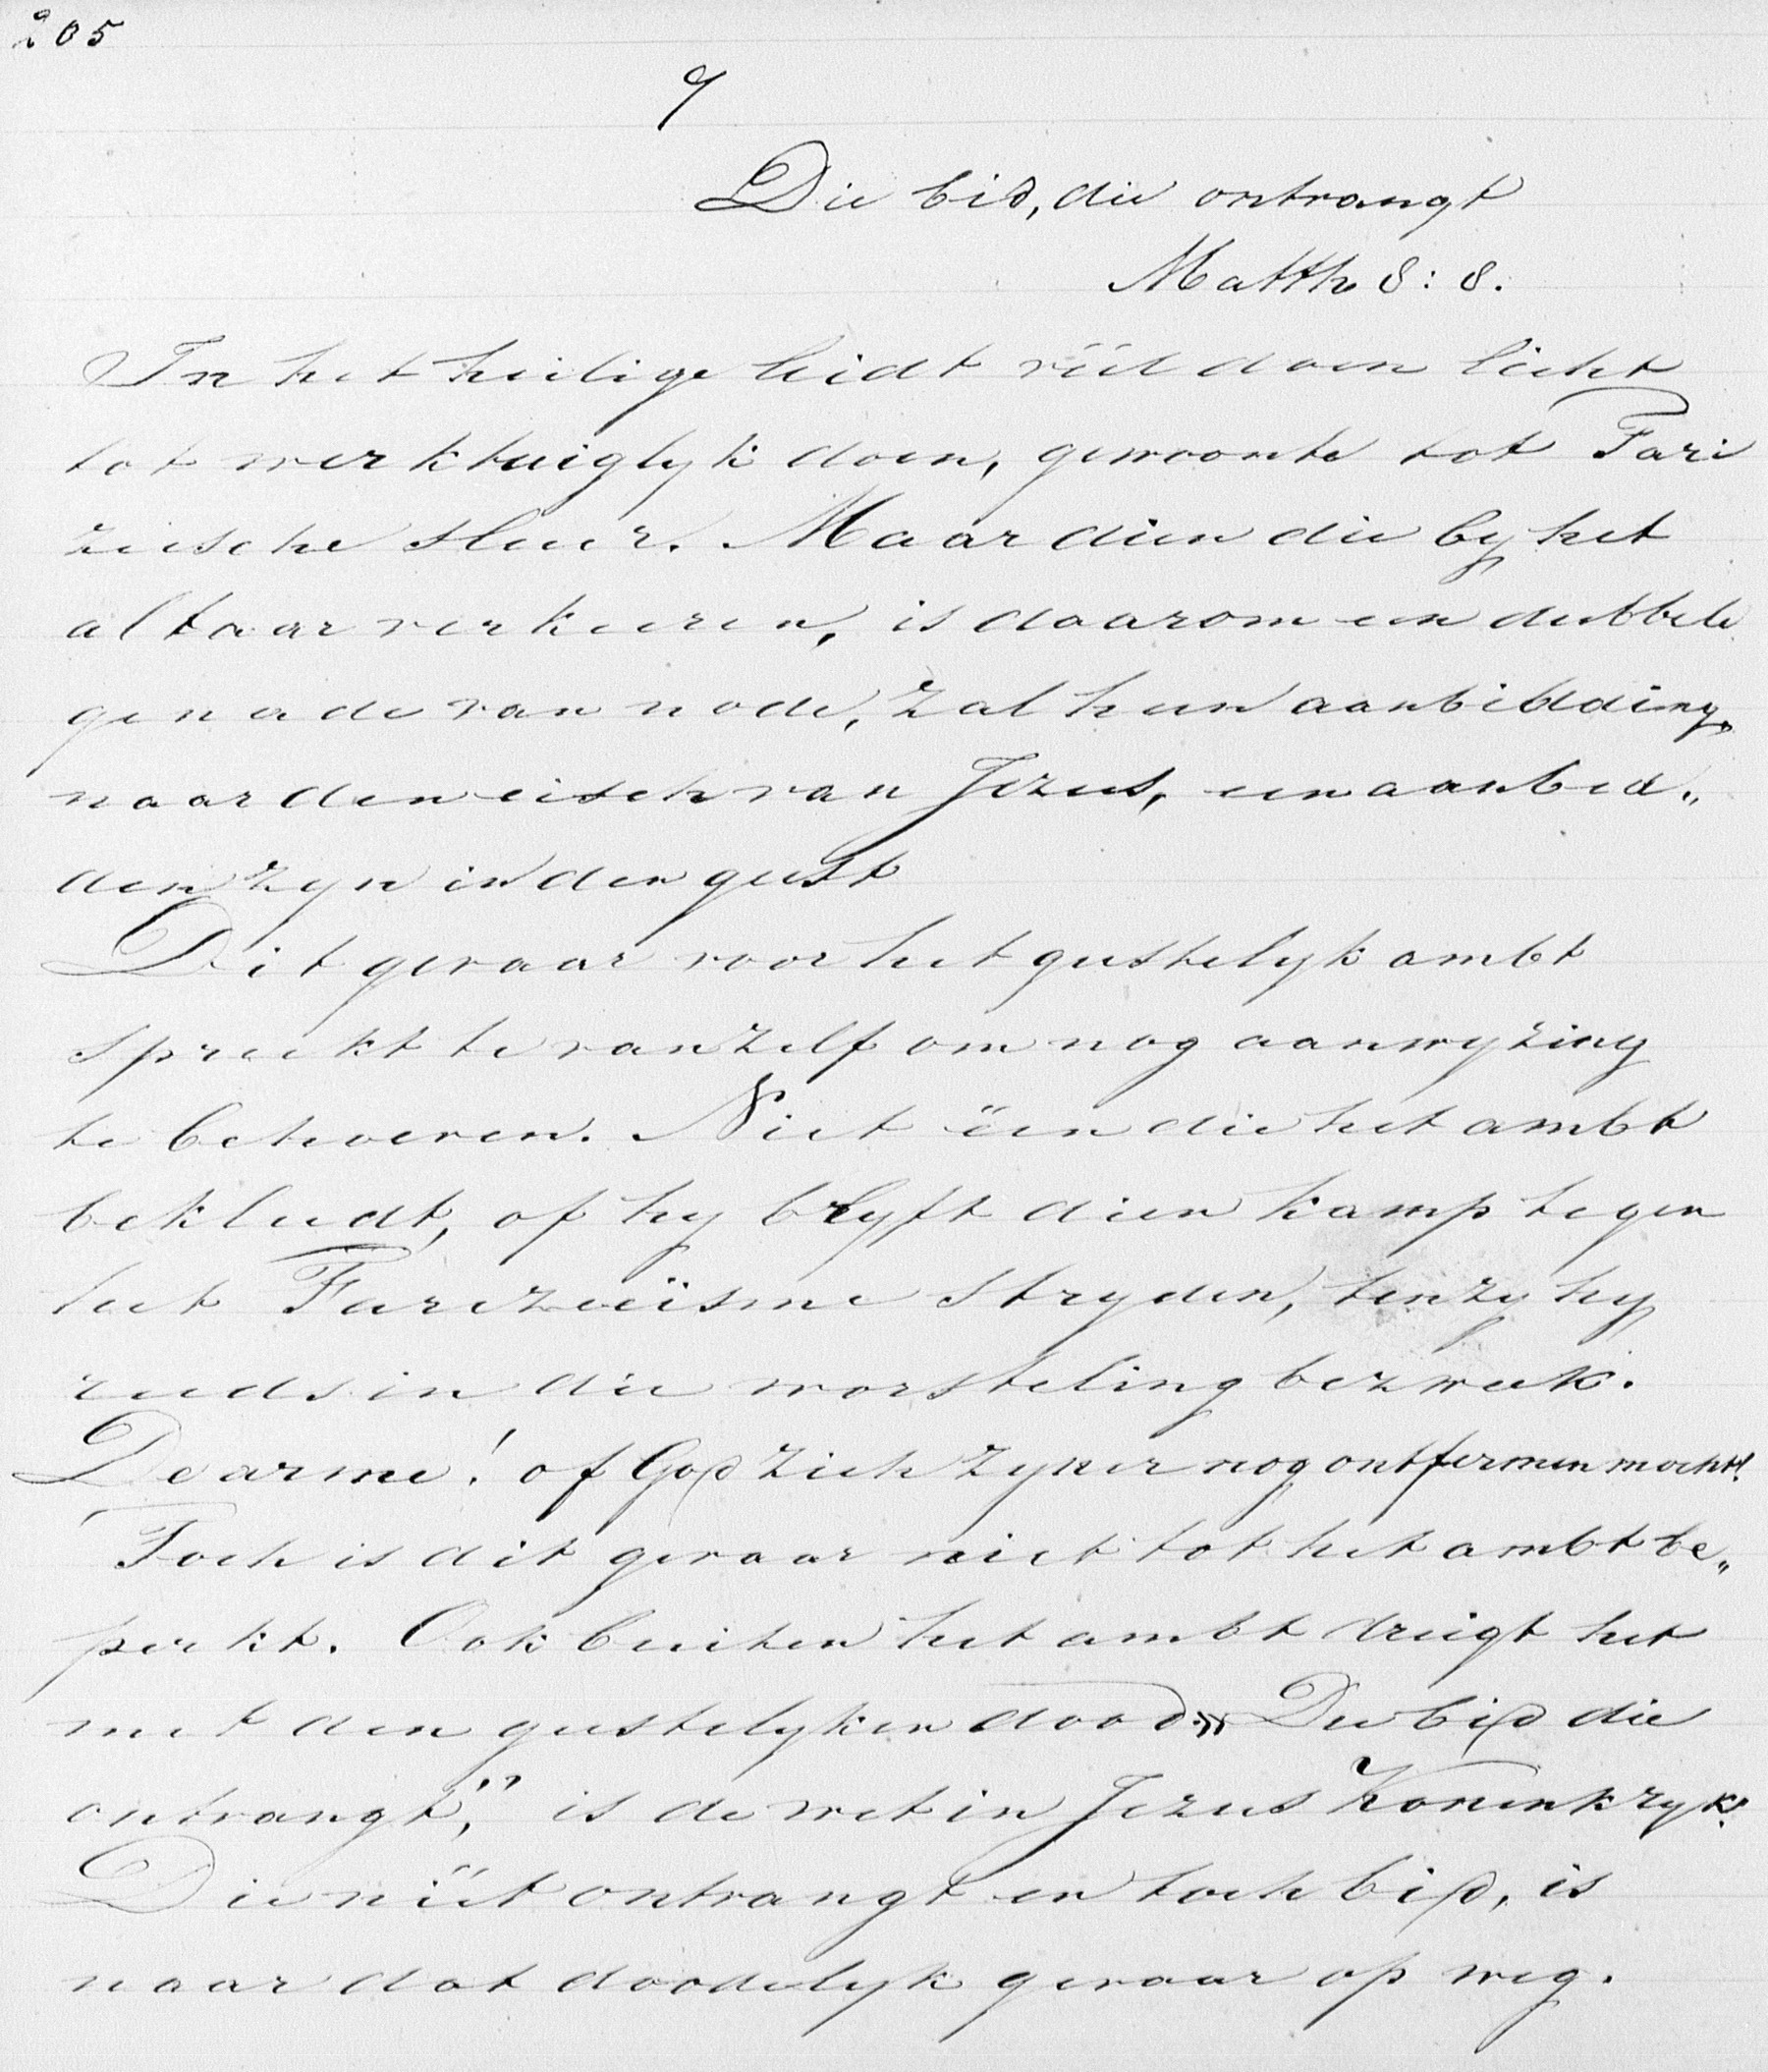 205
9
Die bid, die ontvangt
Matth 8:8.
In het heilige leidt véél doen licht
tot werktuiglyk doen, gewoonte tot Fari
zeesche sleur. Maar dien die by het
altaar verkeeren, is daarom een dubbele
genade van node, zal hun aanbidding,
naar den eisch van Jezus, een aanbid„
den zyn in den geest
Dit gevaar voor het geestelyk ambt
spreekt te vanzelf om nog aanwyzing
te behoeven. Niet één die het ambt
bekleedt, of hy blyft dien kamp tegen
het Farizeeïsme stryden, tenzy hy
reeds in die worsteling bezweek.
De arme! of God zich zyner nog ontfermen mocht!
Toch is dit gevaar niet tot het ambt be„
perkt. Ook buiten het ambt dreigt het
met den geestelyken dood. „Die bid die
ontvangt,” is de wet in Jezus Koninkryk!
Die niet ontvangt en toch bid, is
naar dat doodelyk gevaar op weg.